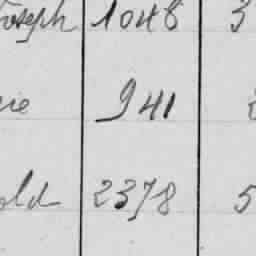 Joseph 1048 3
941
old 2378 5